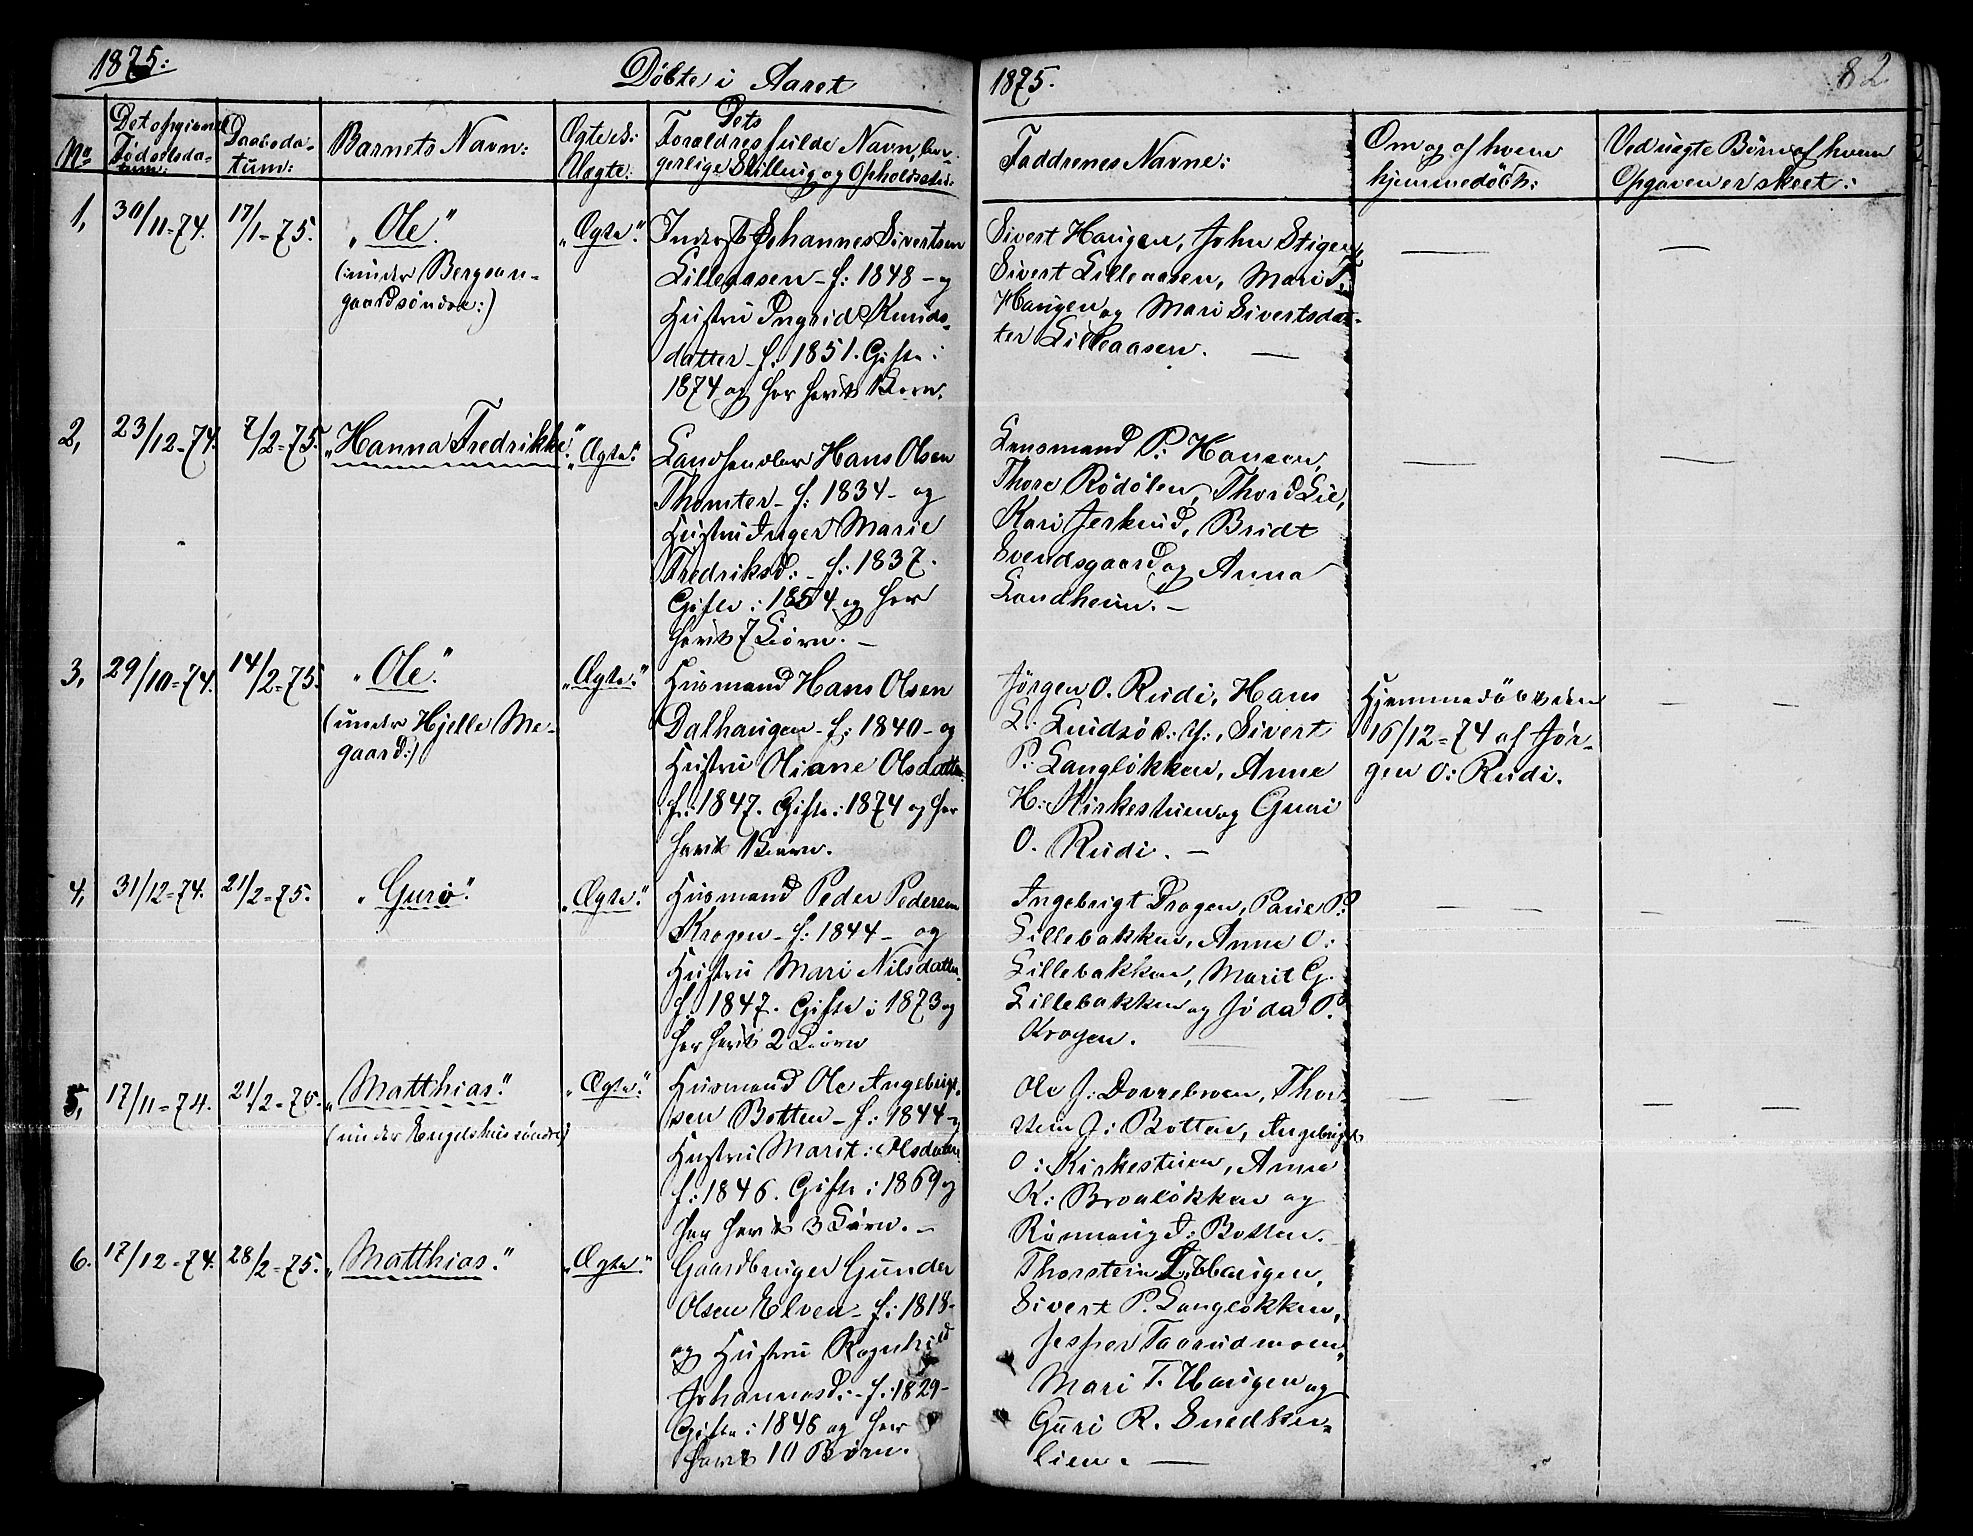 1875:
Døbte i Aaret
1875.
82
No
Det opgivne Fødselsdatum:
Daabsdatum:
Barnets Navn:
Ægte el: Uægte:
Dets Forældres fulde Navn, borgerlige Stilling og Opholdssted:
Faddrenes Navne:
Om og af hvem hjemmedøbt:
Ved uægte Børn af hvem Opgaven er skeet:
1, 30/11=74. 17/1=75. „Ole."
(under Bergsengaard søndre:)
„Ægte."
Inderst Johannes Sivertsen
Lilleaasen - f: 1848 - og
Hustru Ingrid Knuds-
datter - f: 1851. Gifte i
1874 og har havt 1 Barn.
Sivert Haugen, John Stigen,
Sivert Lilleaasen, Mari T.
Haugen og Mari Sivertsdat-
ter Lilleaasen. —
2, 23/12=74. 7/2=75. „Hanna Fredrikke."
„Ægte."
Landhandler Hans Olsen
Thomter - f: 1834 - og
Hustru Inger Marie
Fredriksd: - f: 1837.
Gifte i 1854 og har
havt 7 Børn. —
Lensmand P: Hansen,
Thore Rødølen, Thord Lie,
Kari Jerkind, Bridt
Svendsgaard og Anna
Landheim. —
3, 29/10=74. 14/2=75. „Ole."
(under Hjelle Me-
gaard:)
„Ægte."
Husmand Hans Olsen
Dalhaugen - f: 1840 - og
Hustru Oliane Olsdatter
f: 1847. Gifte i 1874 og har
havt 1 Barn.
Jørgen O. Rudi, Hans
L: Lusd: y:, Sivert
P: Langløkken, Anne
H: Kirkestuen og Guri
O. Rudi. —
Hjemmedøbt den
16/12=74 af Jør-
gen O: Rudi.
4, 31/12=74. 21/2=75. „Guro."
„Ægte."
Husmand Peder Pedersen
Krogen - f: 1844 - og
Hustru Mari Nilsdatter
f: 1847. Gifte i 1873 og
har havt 2 Børn
Ingebrigt Krogen, P:
Lillebakken, Anne O:
Lillebakken, Marit G.
Lillebakken og Jøda P.
Krogen.
5, 17/11=74. 21/2=75. „Matthias."
(under Engelshus søndre)
„Ægte."
Husmand Ole Ingebrigt-
sen Botten - f: 1844 - og
Hustru Marit Olsdatter
f: 1846. Gifte i 1869 og
har havt 3 Børn. —
Ole J: Dovrebroen, Thor-
stein J: Botten, Ingebrigt
O: Kirkestuen, Anne
K: Broeløkken og
Rønnaug I: Botten.
6. 17/12=74. 28/2=75. „Matthias."
„Ægte."
Gaardbruger Gunder
Olsen Elven - f: 1818 -
og Hustru Ragnhild
Johannesd: - f: 1829 -
Gifte i 1846 og har
havt 10 Børn.
Thorstein L. Haugen,
Sivert P. Langløkken,
Jesper Taarudmoen,
Mari T. Haugen og
Guri R. Snedker-
lien. —